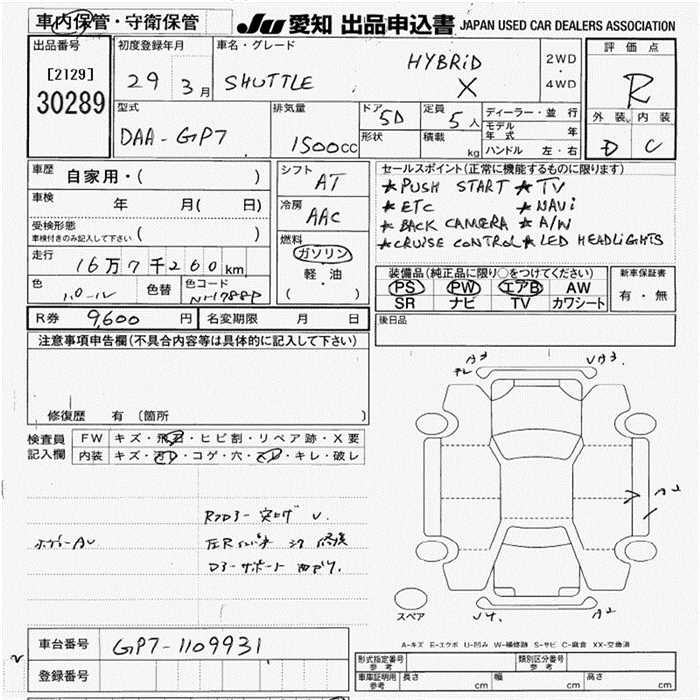 車内保管・守衛保管 JU 愛知 出品申込書 JAPAN USED CAR DEALERS ASSOCIATION
出品番号 初度登録年月 車名・グレード 2WD ・ 4WD 評価点
[2129] 29 3月 SHUTTLE HYBRiD X R
30289
外装 内装
D C
型式 排気量 ドア 5D 定員 5人 ディーラー・並行
DAA-GP7 1500cc 形状 積載 kg モデル年式 年
ハンドル 左・右
車歴 自家用・( ) シフト AT セールスポイント(正常に機能するものに限ります)
★PUSH START ★TV
車検 年 月( 日) 冷房 AAC ★ETC ★NAVi
受検形態 ( ) ★BACK CAMERA ★A/W
車検付きのみ記入して下さい ★CRUISE CONTROL ★LED HEADLiGHTS
走行 16万7千260km 燃料 ガソリン 軽・油 ( )
装備品(純正品に限り○をつけてください) 新車保証書
PS PW エアB AW 有・無
SR ナビ TV カワシート
色 パール 色替 色コード NH788P
R券 9,600円 名変期限 月 日 後日品
注意事項申告欄(不具合内容等は具体的に記入して下さい)
修復歴 有 (箇所 )
検査員 FW キズ・飛石・ヒビ割・リペア跡・X要
記入欄 内装 キズ・汚レ・コゲ・穴・スレ・キレ・破レ
A3 A2
スペア
A-キズ E-エクボ U-凹み W-補修跡 S-サビ C-腐食 XX-交換済
車台番号 GP7-1109931
登録番号
形式指定番号 参考 類別区分番号 参考
車庫証明用 参考 長さ cm 幅 cm 高さ cm